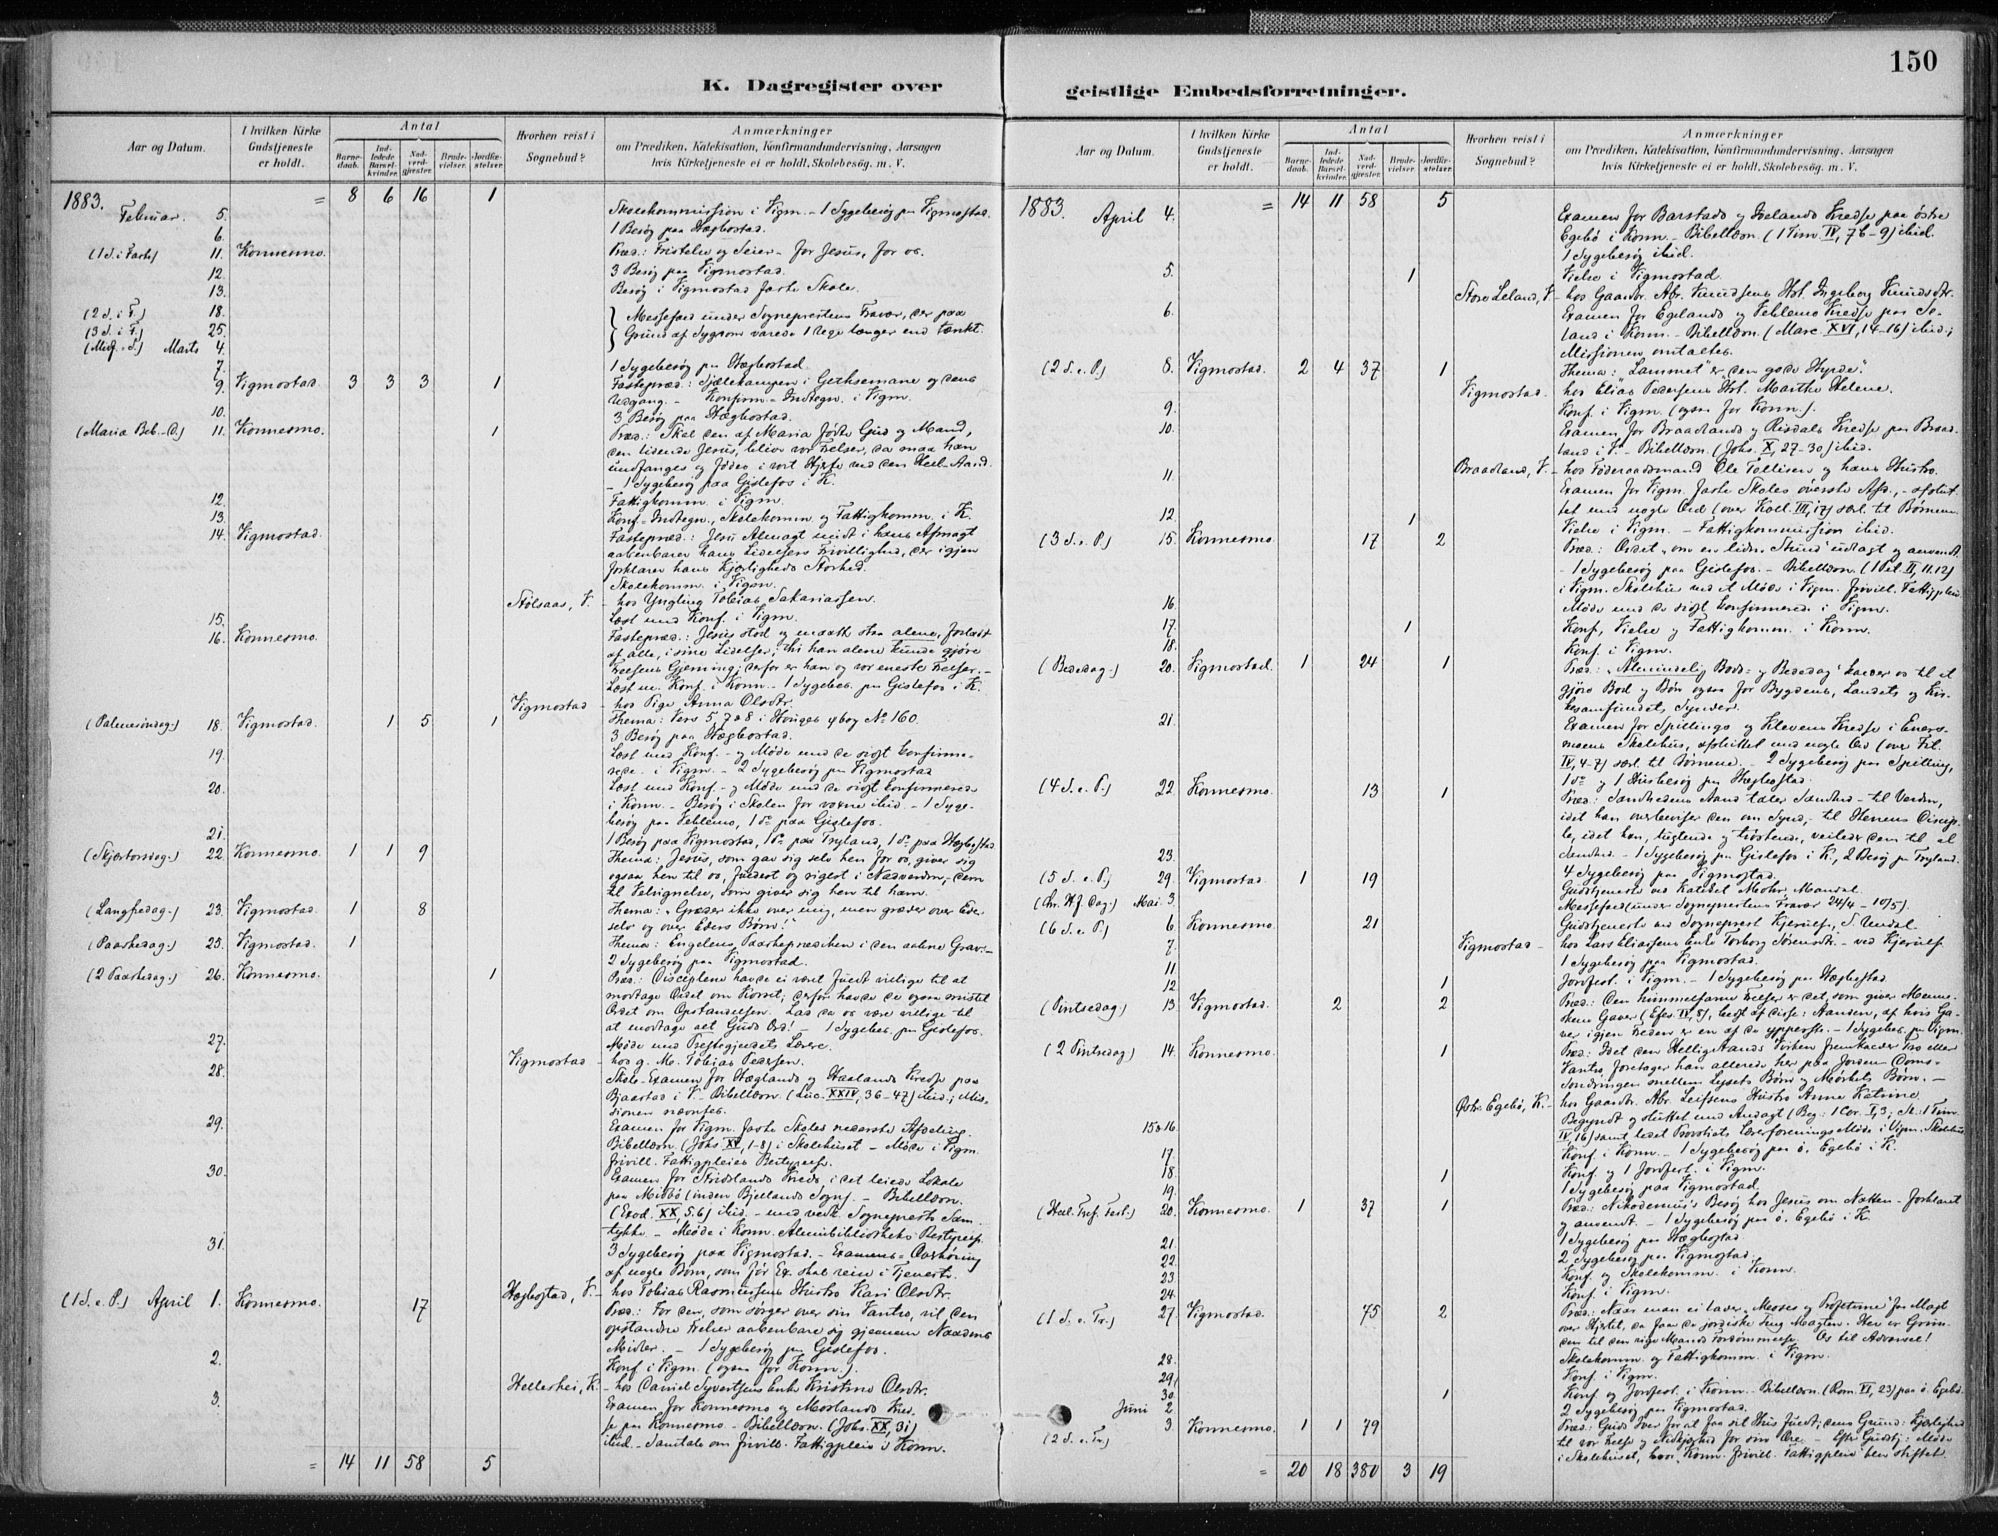 150
K. Dagregister over
geistlige Embedsforretninger.
Aar og Datum.
I hvilken Kirke Gudstjeneste er holdt.
Antal
Barne-daab.
Ind-ledede Barsel-kvinder.
Nad-verd-gjester.
Brude-vielser.
Jordfæ-stelser.
Hvorhen reist i Sognebud?
Anmærkninger
om Prædiken, Katekisation, Konfirmandundervisning, Aarsagen
hvis Kirketjeneste ei er holdt, Skolebesøg. m. V.
1883. = 8 6 16 1
Februar. 5. Skolekommission i Vigm. - 1 Sygebesøg paa Vigmostad.
6. 1 Besøg paa Hægbostad.
(1 S. i Faste) 11. Konnesmo. Præd.: Fristelse og Seier - for Jesus, for os.
12. 3 Besøg paa Vigmostad.
13. Besøg i Vigmostad faste Skole.
(2 S. i F.) 18. Messefald under Sogneprestens Fravær, der paa
(3 S. i F.) 25. Grund af Sygdom varede 1 Uge længer end tænkt.
(Midf. S.) Marts 4.
7. 1 Sygebesøg paa Hægbostad.
9. Vigmostad. 3 3 3 1 Fastepræd.: Sjælekampen i Gethsemane og dens
Udgang. - Konfirm.-Indtegn. i Vigm.
10. 3 Besøg paa Hægbostad.
(Maria Beb.-D.) 11. Konnesmo. 1 Præd.: Skal den af Maria fødte Gud og Mand,
den lidende Jesus, blive vor Frelser, da maa han
undfanges og fødes i vort Hjerte ved den Heel. Aand.
- 1 Sygebesøg paa Gislefos i K.
12. Fattigkomm. i Vigm.
13. Konf.-Indtegn., Skolekomm. og Fattigkomm. i K.
14. Vigmostad. Fastepræd.: Jesu Almagt midt i hans Afmagt
aabenbarer hans Lidelsers Frivillighed, der igjen
forklarer hans Kjærligheds Storhed.
Skolekomm. i Vigm.
Stølsaas, V. - hos Yngling Tobias Sakariassen.
15. Læst med Konf. i Vigm.
16. Konnesmo. Fastepræd.: Jesus stod og maatte staa alene, forladt
af alle, i sine Lidelser; thi han alene kunde gjøre
Frelsens Gjerning; derfor er han og vor eneste Frelser. -
Læst m. Konf. i Konn. - 1 Sygebes. paa Gislefos i K.
Vigmostad - hos Pige Anna Olsdtr.
(Palmesøndag) 18. Vigmostad. 1 5 1 Thema: Vers 5, 7 & 8 i Hauges ψbog No 160.
3 Besøg paa Hægbostad.
19. Læst med Konf. - og Møde med de sidst konfirme-
rede i Vigm. - 2 Sygebesøg paa Vigmostad
20. Læst med Konf. - og Møde med de sidst konfirmerede
i Konn. - Besøg i Skolen for voxne ibid. - 1 Syge-
besøg paa Veblemo, 1 do paa Gislefos.
21. 1 Besøg paa Vigmostad, 1 do paa Tryland, 1 do paa Hægbostad
(Skjærtorsdag) 22. Konnesmo. 1 1 9 Thema: Jesus, som gav sig selv hen for os, giver sig
ogsaa hen til os, fuldest og rigest i Nadveren, - dem
til Velsignelse, som giver sig hen til ham.
(Langfredag) 23. Vigmostad. 1 8 Thema: „Græder ikke over mig, men græder over Eder
selv og over Eders Børn!"
(Paaskedag) 25. Vigmostad. 1 Thema: Engelens Paaskeprædiken i den aabne Grav. -
2 Sygebesøg paa Vigmostad.
(2 Paaskedag) 26. Konnesmo. 1 Præd.: Disciplene havde ei været fuldt villige til at
modtage Ordet om Korset; derfor havde de ogsaa mistet
Ordet om Opstandelsen. Lad da os være villige til
at modtage alt Guds Ord! - 1 Sygebes. paa Gislefos.
27. Møde med Prestegjeldets Lærere.
Vigmostad - hos g. M. Tobias Pedersen.
28. Skole-Examen for Hæglands og Haalands Kredse paa
Bjaastad i V. - Bibellæsn. (Luc. XXIV, 36-47) ibid.; Mis-
sionen nævntes.
29. Examen for Vigm. faste Skoles nederste Afdeling.
Bibellæsn. (Johs. XV, 1-8) i Skolehuset - Møde i Vigm.
frivill. Fattigpleies Bestyrelse.
30. Examen for Stridslands Kreds, i det leiede Lokale
paa Midbø (inden Bjellands Sogn). - Bibellæsn.
(Exod. XX, 5.6) ibid. - med vedk. Sogneprests Sam-
tykke. - Møde i Konn. Almuebibliotheks Bestyrelse.
31. 3 Sygebesøg paa Vigmostad. - Examens-Overhøring
af nogle Børn, som før Ex. skal reise i Tjeneste.
Hægbostad, V. - hos Tobias Rasmussens Hustro Kari Olsdtr.
(1 S. e. P.) April 1. Konnesmo. 17 Præd.: For den, som sørger over sin Vantro, vil den
opstandne Frelser aabenbare sig gjennem Naadens
Midler. - 1 Sygebesøg paa Gislefos.
2. Konf. i Vigm. (ogsaa for Konn.).
Helleshei, K. - hos Daniel Syvertsens Enke Kristine Olsdtr.
3. Examen for Konnesmo og Moslands Kred-
se paa Konnesmo - Bibellæsn. (Johs. XX, 31)
ibid. - Samtale om frivill. Fattigpleie i Konn.
= 14 11 58 5
Aar og Datum.
I hvilken Kirke Gudstjeneste er holdt.
Antal
Barne-daab.
Ind-ledede Barsel-kvinder.
Nad-verd-gjester.
Brude-vielser.
Jordfæ-stelser.
Hvorhen reist i Sognebud?
Anmærkninger
om Prædiken, Katekisation, Konfirmandundervisning, Aarsagen
hvis Kirketjeneste ei er holdt, Skolebesøg. m. V.
1883. = 14 11 58 5
April 4. Examen for Barstads og Helands Kredse paa østre
Egebø i Konn. - Bibellæsn. (1 Tim. IV, 7b-9) ibid.
1 Sygebesøg ibid.
5. 1 Vielse i Vigmostad.
Store Leland, V. - hos Gaardbr. Abr. Knudsens Hst. Ingeborg Knudsdtr.
6. Examen for Egelands og Veblemo Kredse paa
land i Konn. - Bibellæsn. (Marc. XVI, 14-16) ibid.;
Missionen omtaltes.
(2 S. e. P.) 8. Vigmostad. 2 4 37 1 Thema: „Lammet" er „den gode Hyrde".
Vigmostad. - hos Elias Pedersens Hst. Marthe Helene.
9. Konf. i Vigm. (ogsaa for Konn.).
10. Examen for Braadlands og Risdals Kredse paa Braad-
land i V. - Bibellæsn. (Johs. X, 27-30) ibid.
Braadland, V. - hos Føderaadsmand Ole Tollisen og hans Hustro.
11. Examen for Vigm. faste Skoles øverste Afd., - afslut-
tet med nogle Ord (over Koll. III, 17) særl. til Børnene.
12. 1 Vielse i Vigm. - Fattigkommission ibid.
(3 S. e. P.) 15. Konnesmo. 17 2 Præd.: Ordet „om en liden Stund" udlagt og anvendt.
- 1 Sygebesøg paa Gislefos. - Bibellæsn. (1 Pet. II, 11.12)
i Vigm. Skolehus ved et Møde i Vigm. frivill. Fattigpleie.
16. Møde med de sidst konfirmerede i Vigm.
17. 1 Konf., Vielse og Fattigkomm. i Konn.
18. Konf. i Vigm.
(Bededag) 20. Vigmostad. 1 24 1 Præd.: „Almindelig Bods- og Bededag" kalder os til at
gjøre Bod og Bøn ogsaa for Bygdens, Landets og Kir-
kesamfundets Synder.
21. Examen for Spillings og Klevens Kredse i Eners-
moens Skolehus, afsluttet med nogle Ord (over Fil.
IV, 4-7) særl. til Børnene. - 2 Sygebesøg paa Spilling,
1 do og 1 Husbesøg paa Hægbostad.
(4 S. e. P.) 22. Konnesmo. 13 1 Præd.: Sandhedens Aand taler Sandhed - til Verden,
idet han overbeviser den om Synd, - til Herrens Discip-
le, idet han, tugtende og trøstende, veileder dem til al
Sandhed. - 1 Sygebesøg paa Gislefos i K., 2 Besøg paa Tryland.
23. 4 Sygebesøg paa Vigmostad.
(5 S. e. P.) 29. Vigmostad. 1 19 Gudstjeneste ved Kateket Mohr, Mandal.
(Kr. Hf. Dag.) Mai 3. Messefald (under Sogneprestens Fravær 24/4 - 10/5).
(6 S. e. P.) 6. Konnesmo. 21 Gudstjeneste ved Sogneprest Kjerulf, S. Undal.
Vigmostad - hos Lars Eliassens Enke Torborg Sørensdtr. - ved Kjerulf.
7. 1 Sygebesøg paa Vigmostad.
11. Jordfest. i Vigm. - 1 Sygebesøg paa Hægbostad.
12. 1
(Pintsedag) 13. Vigmostad. 2 2 Præd.: Den himmelfarne Frelser er det, som giver Menne-
skene Gaver (Efes. IV, 8), bedst af disse: Aanden, af hvis Ga-
ver igjen Freden er en af de ypperste. - 1 Sygebes. paa Vigm.
(2 Pintsedag) 14. Konnesmo. 1 Præd.: Idet den Helligaands Virken fremkalder Tro eller
Vantro, foretager han allerede her paa Jorden Doms-
Sondringen mellem Lysets Børn og Mørkets Børn. -
Østre Egebø, K. - hos Gaardbr. Abr. Leifsens Hustro Anne Katrine.
15 & 16 Begyndt og sluttet med Andagt (Beg.: 1 Cor. I, 3; Sl.: 1 Tim.
IV, 16) samt ledet Provstiets Lærerforenings Møde i Vigm. Skolehus.
17. Konf. i Konn. - 1 Sygebesøg paa ø. Egebø i K.
18. 1 Konf. og 1 Jordfest. i Vigm.
19. 1 Sygebesøg paa Vigmostad.
(Hell. Tref. Fest.) 20. Konnesmo. 1 37 1 Præd.: Nikodemus's Besøg hos Jesus om Natten - forklaret
og anvendt. - 1 Sygebesøg paa ø. Egebø i K.
21. 1 Sygebesøg paa Hægbostad
22. 2 Sygebesøg paa Vigmostad.
23 Konf. og Skolekomm. i Konn.
24. Konf. i Vigm.
(1 S. e. Tr.) 27. Vigmostad. 75 2 Præd.: Naar man ei lader „Moses og Profeterne" faa Magt
over Hjertet, da faa de jordiske Ting Magten. Her er Grun-
den til den rige Mands Fordømmelse. Os til Advarsel!
28. Skolekomm. og Fattigkomm. i Vigm.
29. Konf. i Vigm.
30. 1 Konf. og Jordfest. i Konn. - Bibellæsn. (Rom. VI, 23) paa ø. Egebø.
Juni 2 2 Sygebesøg paa Vigmostad.
(2 S. e. Tr.) 3. Konnesmo. 1 1 79 Præd.: Guds Iver for at faa sit Hus fuldt; dens Grund: Kjærlighed
til vor Frelse og Nidkjærhed for sin Ære. - Efter Gudstj.: Møde
i Skolehuset, hvor Konn. frivill. Fattigpleie blev stiftet.
= 20 18 380 3 19